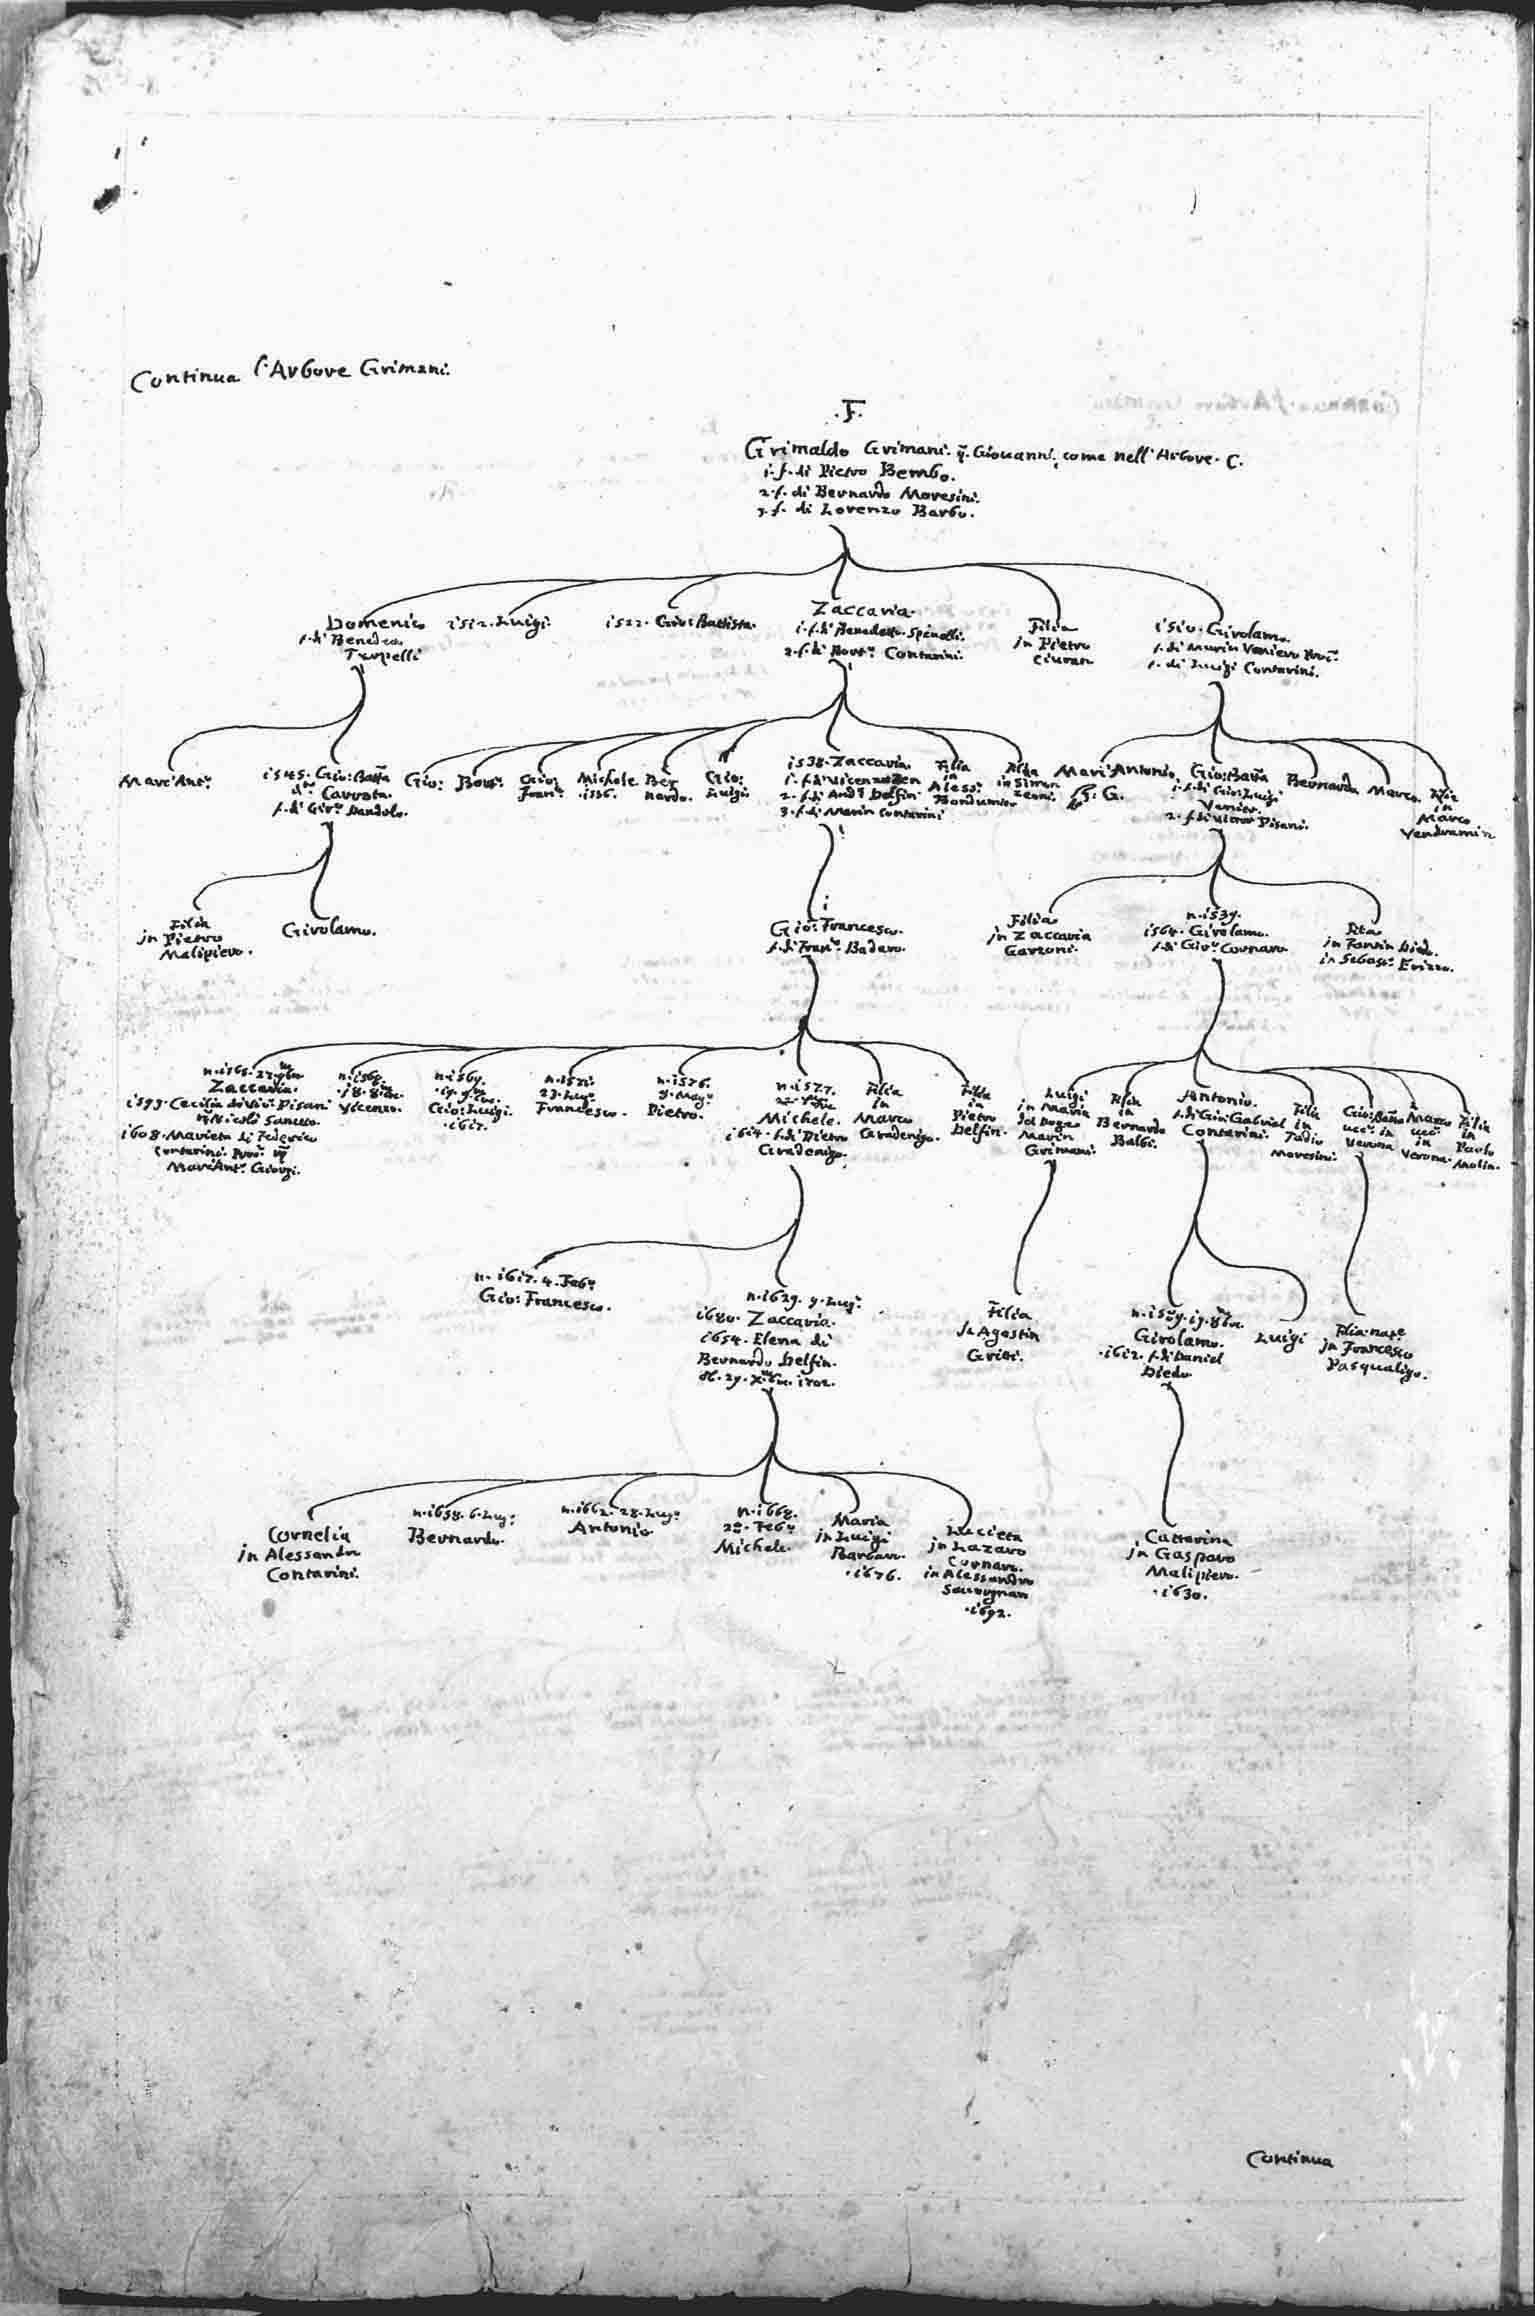 Continua l'Arbore Grimani.
.F.
Grimaldo Grimani. q. Giovanni, come nell'Arbore. C.
1. f. di Pietro Bembo.
2. f. di Bernardo Moresini.
3. f. di Lorenzo Barbo.
Domenico
f. di Benedeo.
1512. Luigi.
1522. Gio: Battista.
Zaccaria.
1. f. di Benedetto Spinelli.
2. f. di Bort.º Contarini.
Filia
in Pietro
Ciuran
1510. Girolamo.
f. di Marin Veniero Proc.
f. di Luigi Contarini.
Marc'Ant.º
1545. Gio: Batta
Carrota.
f. di Gir.º Dandolo.
Gio:
Bort.º
Gio:
Fran.º
Michele
1536.
Ber
nardo.
Gio:
Luigi.
1538. Zaccaria.
1. f. di Vicenzo Zen
2. f. di And.ª Delfin
3. f. di Marin Contarini
Filia
in
Aless.
Bondumier
Filia
in Simon
Zeoni.
Marc'Antonio.
G.
Gio: Batta
1. f. di Gio: Luigi
Venier.
2. f. di Vittor Pisani.
Bernardo
Marco.
Filia
in
Marco
Vendramin
Filia
jn Pietro
Malipiero.
Girolamo.
1
Gio: Francesco.
f. di Fran.º Badoero.
Filia
jn Zaccaria
Garzoni.
n. 1539.
1564. Girolamo.
f. di Gir.º Cornaro.
Filia
in Fantin Diedo.
in Sebast.º Erizzo.
n. 1565. 27. 9bre
Zaccaria.
1593. Cecilia di Vic.º Pisani
Nicolò Sanuto.
1608. Marieta di Federico
Contarini. Proc.
Marc'Ant.º Giorgi.
18. 8bre.
Vicenzo.
n. 1569.
Gio: Luigi.
.1617.
n. 1571.
23. Lug.º
Francesco.
n. 1576.
9. Mag.º
Pietro.
n. 1577.
Michele.
1614. f. di Pietro
Gradenigo.
Filia
in
Marco
Gradenigo.
Filia
in
Pietro
Delfin.
Luigi
in Maria
del Doge
Marin
Grimani.
Filia
in
Bernardo
Balbi.
Antonio.
f. di Gio: Gabriel
Contarini.
Filia
in
Tadio
Moresini.
Gio: Batta
ucc.º in
Verona
Marco
ucc.º
in
Verona.
Filia
in
Paolo
Molin.
n. 1617. 4. Feb.º
Gio: Francesco.
n. 1629. 9. Lug.º
1680. Zaccaria.
1654. Elena di
Bernardo Delfin.
29. Xbre. 1702.
Filia
Jn Agostin
Gritti.
Girolamo.
.1612. f. di Daniel
Diedo.
Luigi
Filia nate
jn Francesco
Pasqualigo.
Cornelia
jn Alessandro
Contarini.
n. 1658. 6. Lug.º
Bernardo.
n. 1662. 28. Lug.º
Antonio.
n. 1668.
Feb.º
Michele.
Maria
jn Luigi
Barbaro.
.1676.
Lucieta
jn Lazaro
Cornaro.
in Alessandro
Savorgnan
.1692.
Cattarina
jn Gasparo
Malipiero.
.1630.
Continua